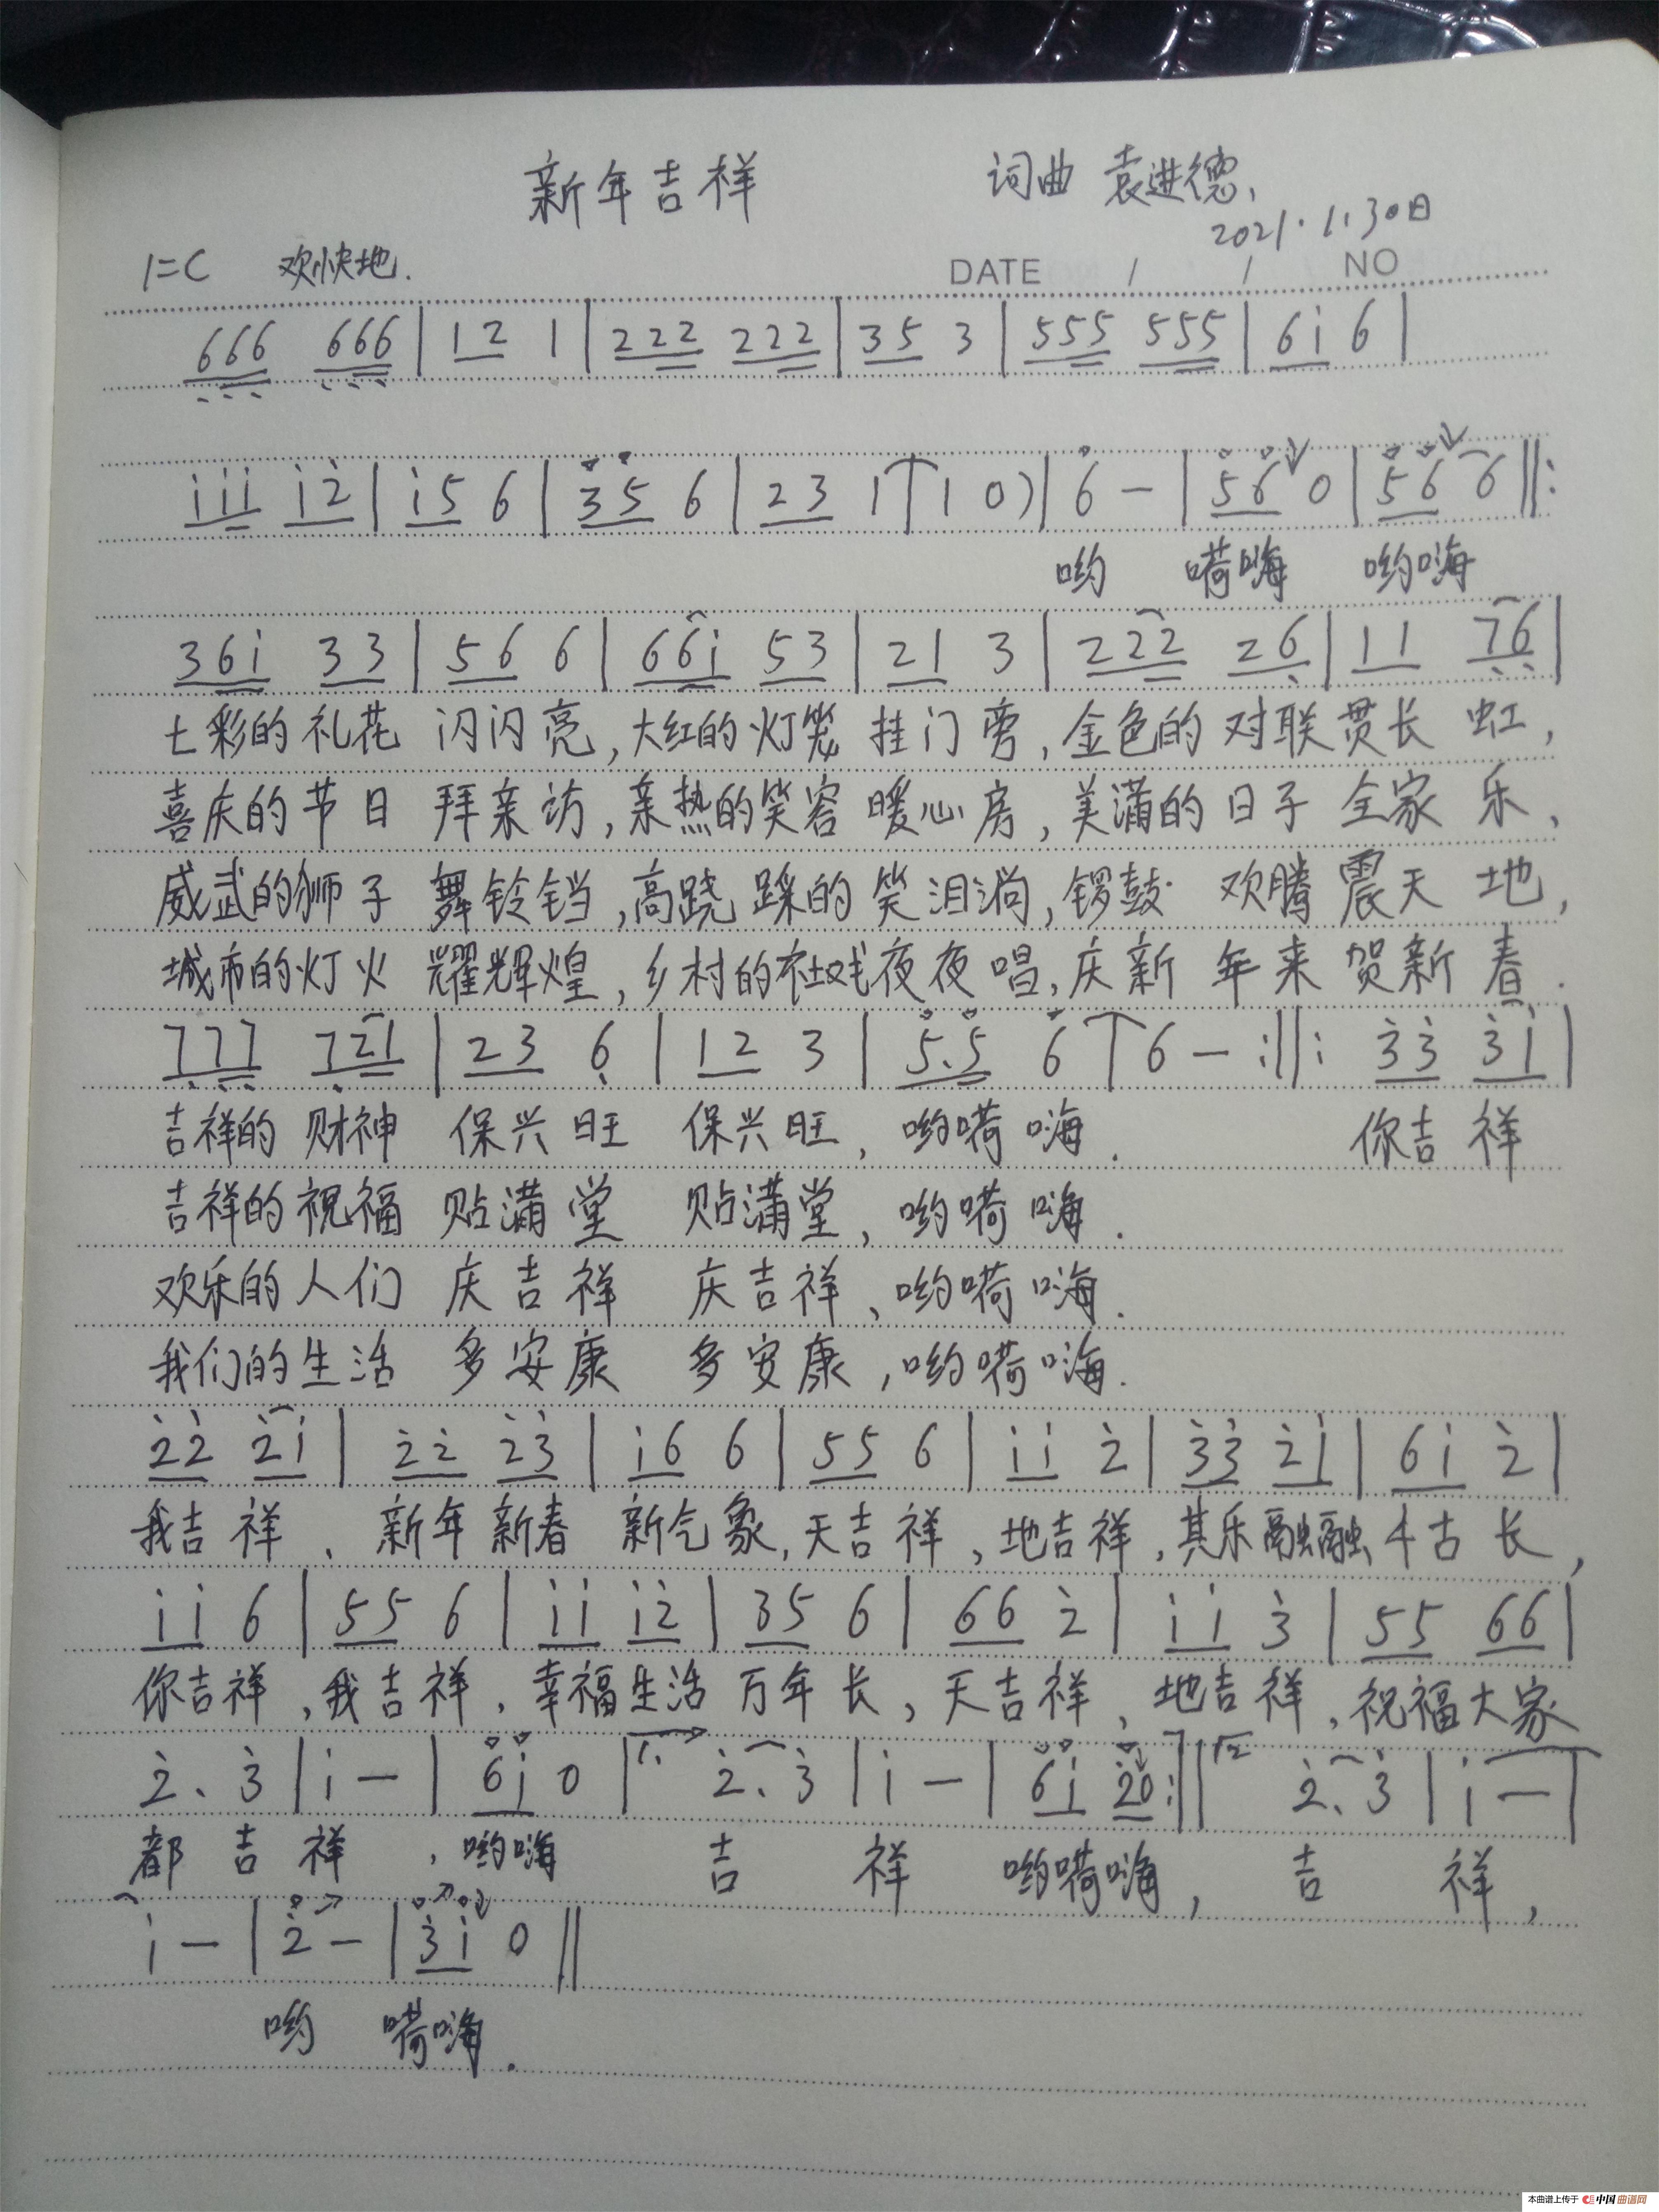 新年吉祥 词曲 袁进德、
2021.1.30日
1=C 欢快地. DATE / / NO
666 666 | 12 1 | 222 222 | 35 3 | 555 555 | 6i 6 |
iii i2 | i5 6 | 35 6 | 23 1 | 1 0) | 6 — | 56 0 | 56 6 ‖:
哟 嗬嗨 哟嗨
36i 33 | 56 6 | 66i 53 | 21 3 | 222 26 | 11 76 |
七彩的礼花 闪闪亮,大红的灯笼 挂门旁,金色的对联贯长虹,
喜庆的节日 拜亲访,亲热的笑容暖心房,美满的日子全家乐,
威武的狮子 舞铃铛,高跷踩的笑泪淌,锣鼓欢腾震天地,
城市的灯火 耀辉煌,乡村的社戏夜夜唱,庆新年来贺新春.
777 721 | 23 6 | 12 3 | 5.5 6 | 6 — :‖: 33 31 |
吉祥的财神 保兴旺 保兴旺,哟嗬嗨. 你吉祥
吉祥的祝福 贴满堂 贴满堂,哟嗬嗨.
欢乐的人们 庆吉祥 庆吉祥、哟嗬嗨.
我们的生活 多安康 多安康,哟嗬嗨.
22 2i | 22 23 | i6 6 | 55 6 | ii 2 | 33 21 | 6i 2 |
我吉祥、新年新春 新气象,天吉祥,地吉祥,其乐融融千古长,
ii 6 | 55 6 | ii i2 | 35 6 | 66 2 | ii 3 | 55 66 |
你吉祥,我吉祥,幸福生活万年长,天吉祥,地吉祥,祝福大家
2、3 | i — | 6i 0 | 1. 2、3 | i — | 6i 20 :‖ 2 2、3 | i — |
都吉祥,哟嗨 吉 祥 哟嗬嗨,吉 祥,
i — | 2 — | 3i 0 ‖
哟 嗬嗨.
本曲谱上传于 中国曲谱网